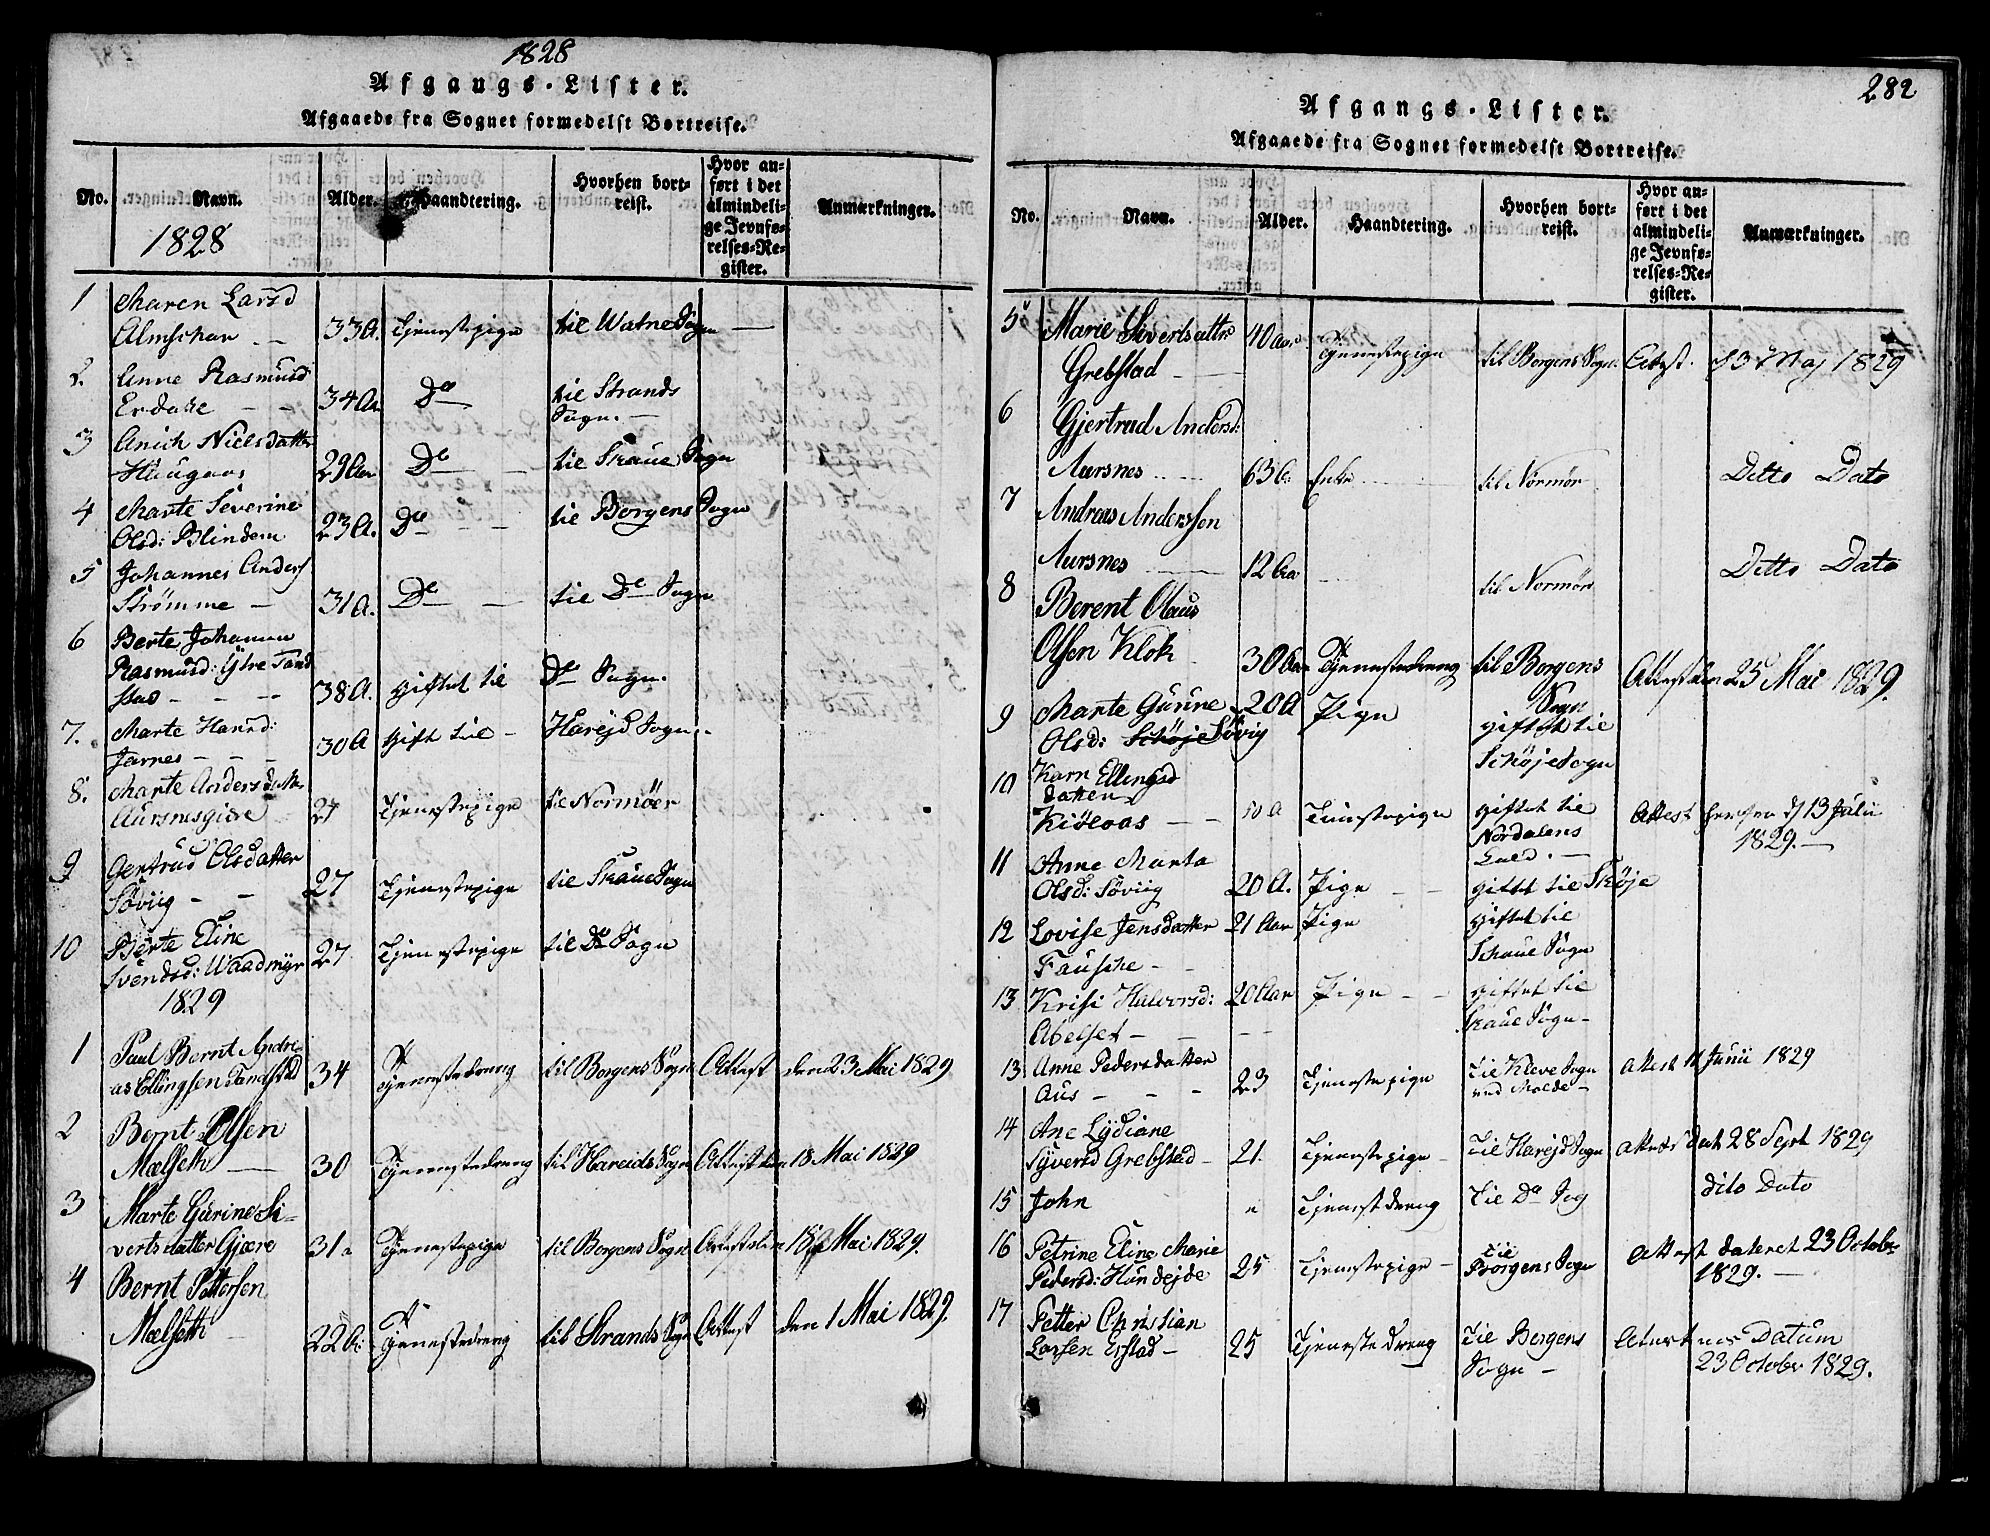 1828
Afgangs-Lister.
Afgaaede fra Sognet formedelst Bortreise.
No. Navn. Alder. Haandtering. Hvorhen bortreist. Hvor anført i det almindelige Jevnførelses-Register. Anmærkninger.
1828
1 Maren Larsd
Almschar 33 A. Tjenestepige til Watne Sogn
2. Anne Rasmusd
Erdahe 34 Aar Do til Strands
Sogn.
3 Anich Nielsdatter
Haugaas 29 Aar Do til Skaue Sogn
4 Marte Severine
Olsd: Blindem 23 A. Do til Borgens Sogn
5 Johannes Anders
Strømme 31 A. Do til Do Sogn
6 Berte Johanna
Rasmusd: Ytre Tand
stad 38 A. giftet til Do Sogn.
7. Marte Hansd:
Jarnes 30 A gift til Harejd Sogn.
8. Marte Andersdatter
Aursnesgiære 27 Tjenestepige til Normöer
9 Gertrud Olsdatter
Søviig 27 Tjenestepige til Skaue Sogn
10 Berte Eline
Svendsd: Waadmyr 27 Tjenestepige til Do Sogn
1829
1 Paul Bernt Andre
as Ellingsen Tandstad 34 Tjenestedreng til Borgens Sogn Attest den 23 Mai 1829
2 Bernt Olsen
Mælseth 30 Tjenestedreng til Hareids Sogn Attest den 18 Mai 1829
3 Marte Gurine Si-
vertsdatter Gjære 31 a Tjenestepige til Borgens Sogn Attest den 18 Mai 1829.
4 Bernt Pettersen
Mælseth 22 A: Tjenestedreng til Strands Sogn Attest den 1 Mai 1829.
282
Afgangs-Lister.
Afgaaede fra Sognet formedelst Bortreise.
No. Navn. Alder. Haandtering. Hvorhen bortreist. Hvor anført i det almindelige Jevnførelses-Register. Anmærkninger.
5 Marie Sivertsdattr
Grebstad 40 Aar Tjenestepige til Borgens Sogn. Attest. d 3 Maj 1829
6 Gjertrud Andersd:
Aursnes 63 A. Enke til Normör Ditto Dato
7 Andreas Anderssen
Aursnes 12 Aar til Normör Ditto Dato
8 Berent Olaus
Olsen Klok 30 Aar Tjenestedreng til Borgens
Sogn Attest den 25 Mai 1829.
9 Marte Gurine 20 A Pige giftet til
Olsd: Schöje Søviig Schöje Sogn
10 Karn Ellingsd
datter
Kiöloas 50 A Tienestepige giftet til
Nordalens
Gield. Attest d 13 Julii
1829.
11 Anne Marta
Olsd: Søviig 20 A. Pige giftt til Skøje
12 Lovise Jensdatter 21 Aar Pige giftet til
Fausche Schaue Sogn
13 Krisi Halvorsd: 20 Aar Pige giftet til
Abelset Skaue Sogn
13 Anne Pedersdatter
Aus 23 Tjenestepige til Kleve Sogn
ved Molde Attest 11 Junii 1829
14 Ane Lydiane
Syversd Grebstad 21. Tjenestepige til Harejd Sogn Attest dat 28 Sept 1829
15 John " Tjenestdreng til Do Sog dito Dato
16 Petrine Eline Marie
Pedersd: Hundejde 25 Tjenestepige til
Borgens Sogn Attest dateret 23 Octobr
1829.
17 Petter Christian
Larsen Erstad 25 Tjenestedreng til Borgens
Sogn Datum
23 Octobr 1829.